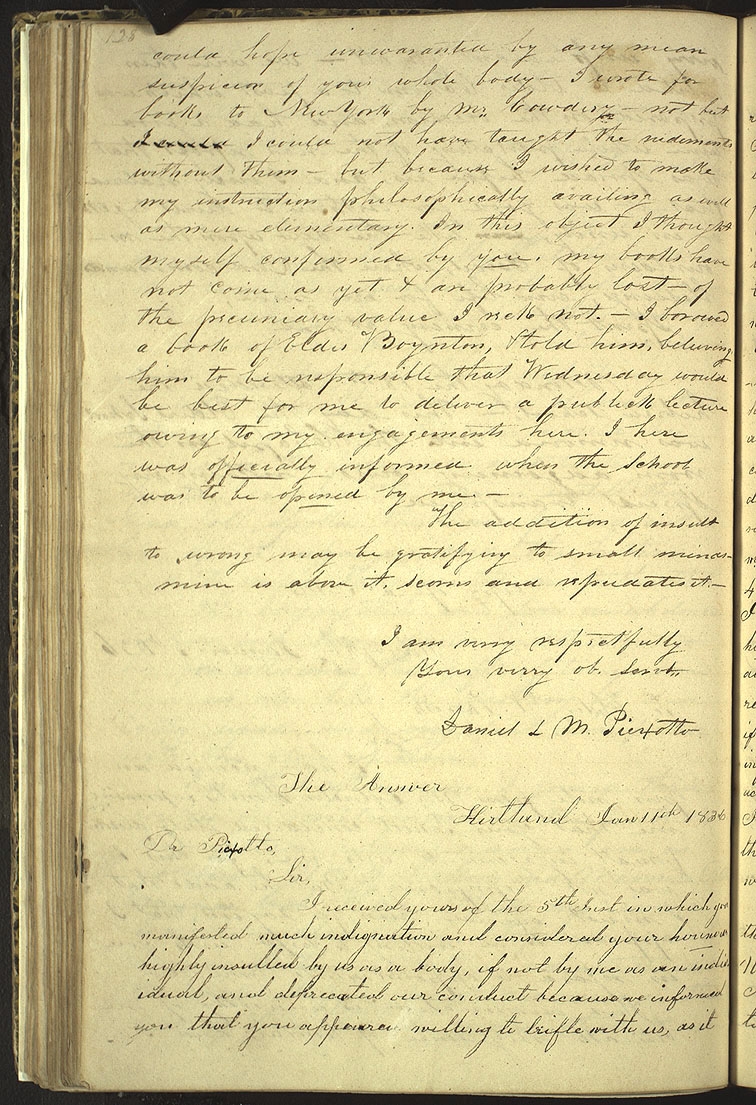 128
could hope unwaranted by any mean
suspicion of your whole body— I wrote for
books to New York by Mr. Cowdery— not but
I could I could not have taught the rudements
without them— but because I wished to make
my instruction philosophically availing as well
as mere elementary. In this object I thought
myself confirmed by you. my books have
not come as yet & are probably lost— of
the pecuniary value I reck not.— I borowed
a book of Elder Boynton, & told him, believing
him to be responsible that Wednesday would
be best for me to deliver a publick lecture
owing to my engagements here. I here
was officially informed when the school
was to be opened by me.—
The addition of insult
to wrong may be gratifying to small minds—
mine is above it, scorns and repudiates it—
I am very respectfully
Your verry ob. Servt.
Daniel L M. Piexotto
The Answer
Kirtland Jan 11th 1836
Dr Piexotto,
Sir,
I received yours of the 5th Inst in which you
manifested much indignation and considered your hounour
highly insulted by us as a body, if not by me as an indiv
idual, and deprecated our conduct because we informed
you that you appeared willing to trifle with us, as it